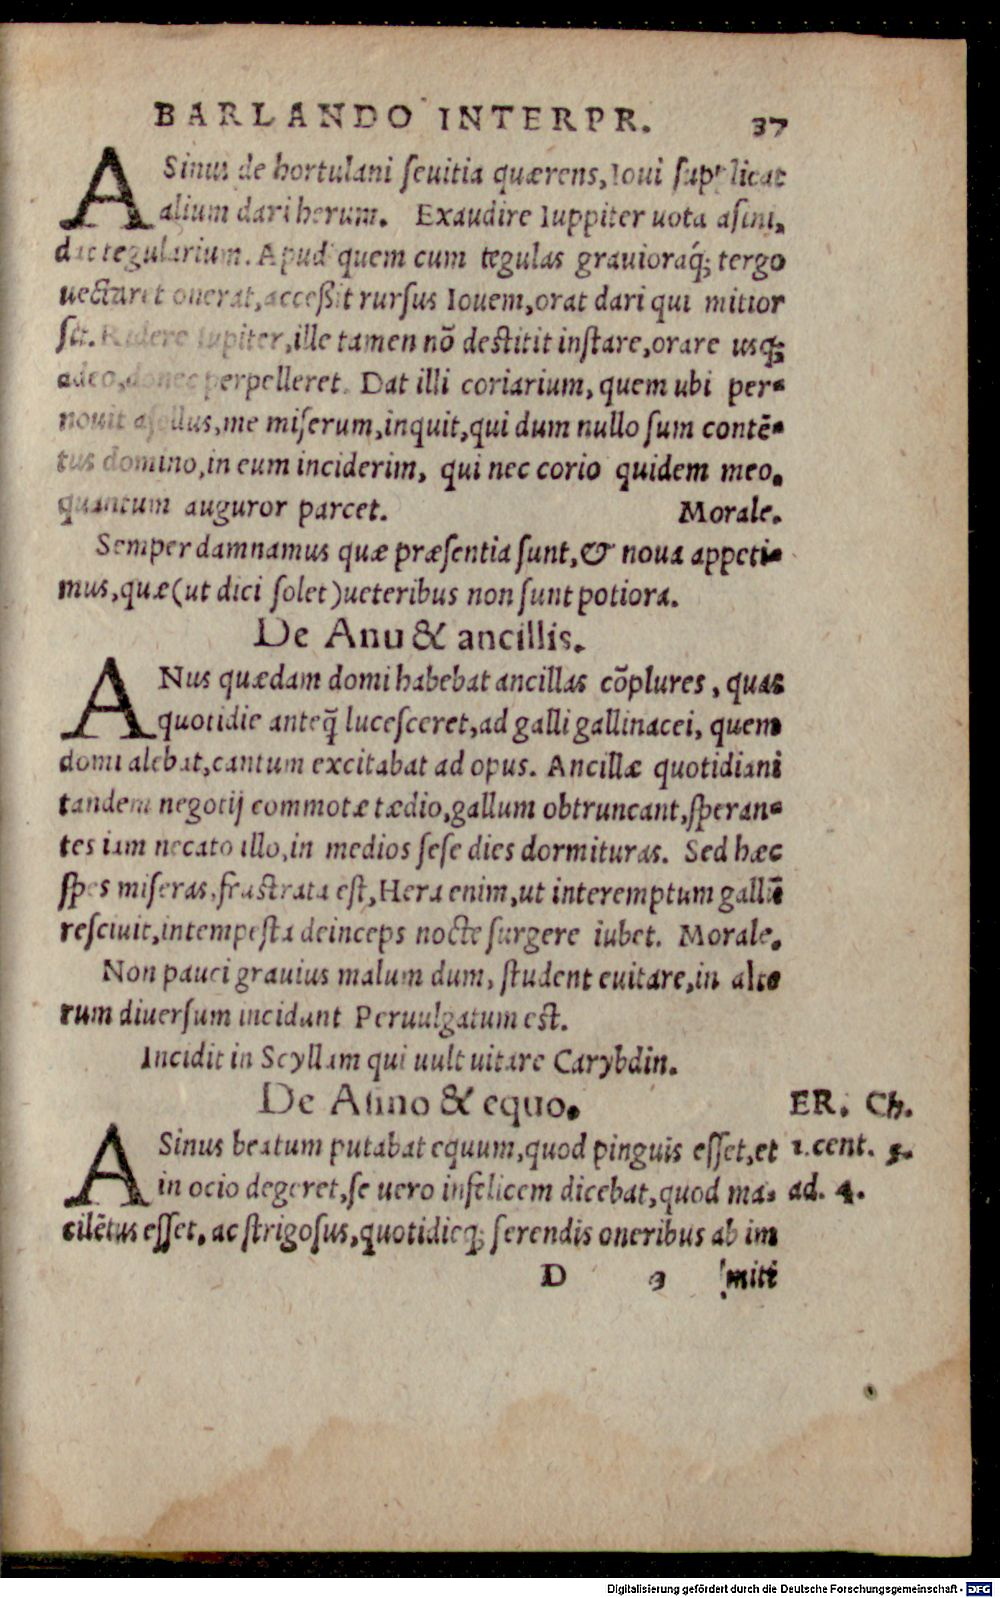 BARLANDO INTERPR. 37
ASinus de hortulani seuitia quærens, Ioui supplicat
alium dari herum. Exaudire Iuppiter uota asini,
dat tegularium. Apud quem cum tegulas grauioraq́; tergo
uectaret onerat, acceßit rursus Iouem, orat dari qui mitior
sit. Ridere Iupiter, ille tamen nõ destitit instare, orare usq́;
adeo, donec perpelleret. Dat illi coriarium, quem ubi per-
nouit asellus, me miserum, inquit, qui dum nullo sum contẽ-
tus domino, in eum inciderim, qui nec corio quidem meo,
quantum auguror parcet. Morale.
Semper damnamus quæ præsentia sunt, & noua appeti-
mus, quæ (ut dici solet) ueteribus non sunt potiora.
De Anu & ancillis.
ANus quædam domi habebat ancillas cõplures, quas
quotidie anteq̃ lucesceret, ad galli gallinacei, quem
domi alebat, cantum excitabat ad opus. Ancillæ quotidiani
tandem negotij commotæ tædio, gallum obtruncant, speran-
tes iam necato illo, in medios sese dies dormituras. Sed hæc
spes miseras, frustrata est, Hera enim, ut interemptum gallũ
resciuit, intempesta deinceps nocte surgere iubet. Morale.
Non pauci grauius malum dum, student euitare, in alte
rum diuersum incidunt Peruulgatum est.
Incidit in Scyllam qui uult uitare Carybdin.
De Asino & equo. ER. Ch.
ASinus beatum putabat equum, quod pinguis esset, et 1. cent. 5.
in ocio degeret, se uero infelicem dicebat, quod ma- ad. 4.
cilẽtus esset, ac strigosus, quotidieq́; ferendis oneribus ab im
D miti
Digitalisierung gefördert durch die Deutsche Forschungsgemeinschaft - DFG